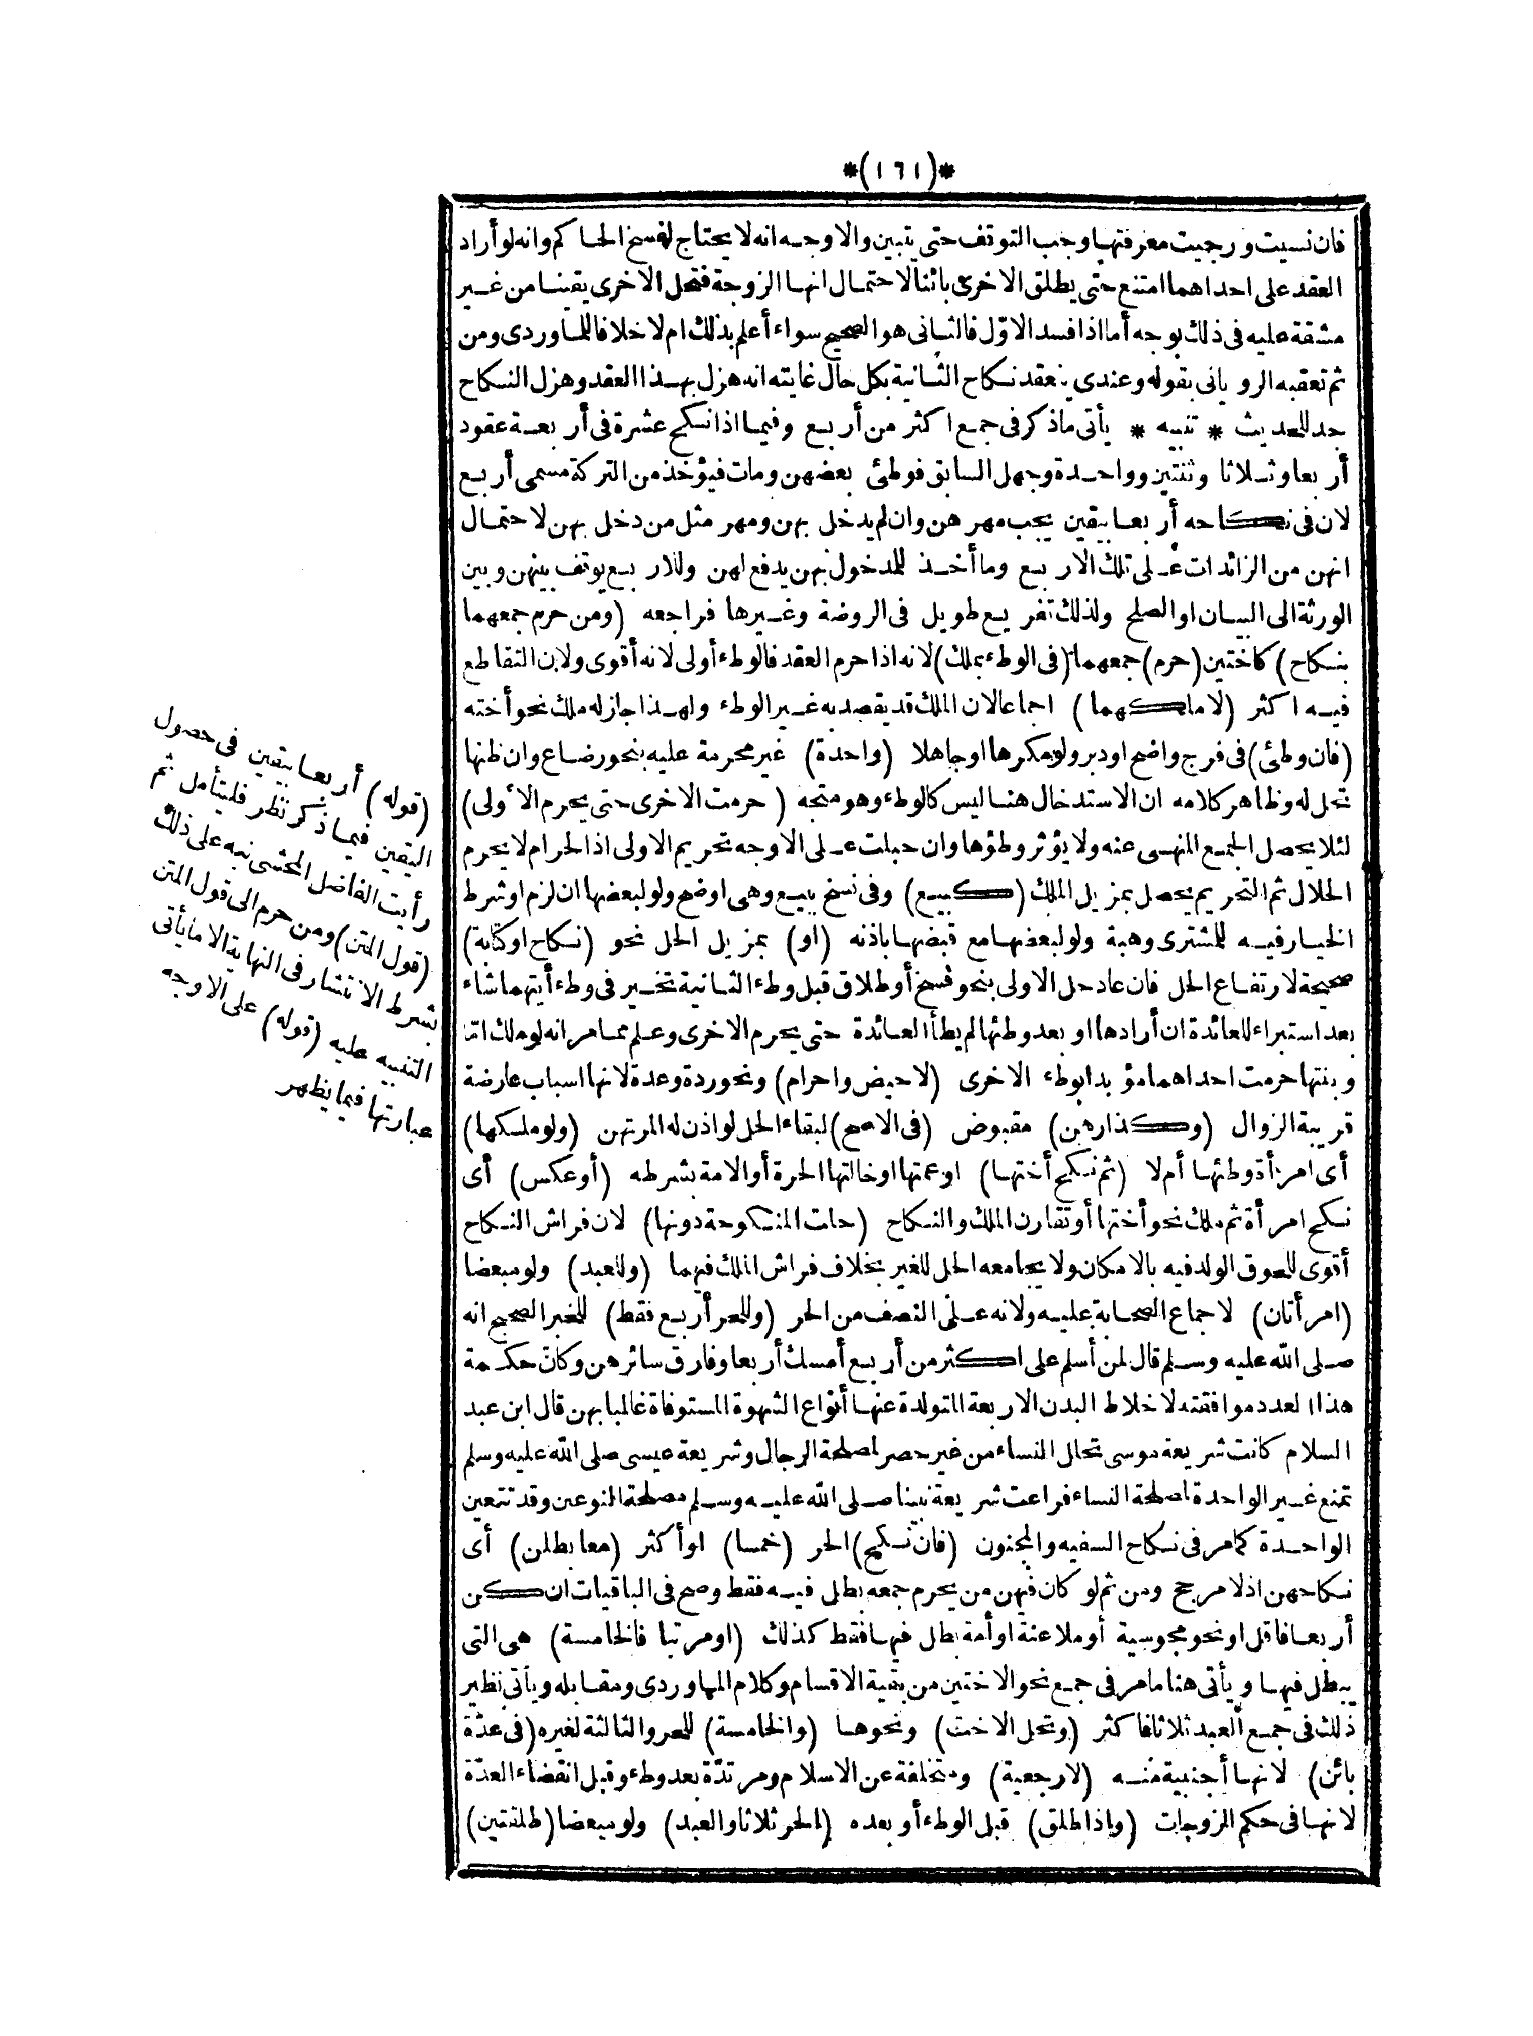 *(١٦١)*
فان نسيت ورجيت معرفتها وجب التوقف حتى يتبين والاوجه انه لا يحتاج لفسخ الحاكم وانه لو أراد
العقد على احداهما امتنع حتى يطلق الاخرى بائنا لاحتمال انها الزوجة فتحل الاخرى يقينا من غير
مشقة عليه فى ذلك بوجه أما اذا فسد الاوّل فالثانى هو الصحيح سواء أعلم بذلك ام لا خلافا للماوردى ومن
ثم تعقبه الرويانى بقوله وعندى ينعقد نكاح الثانية بكل حال غايته انه هزل بهذا العقد وهزل النكاح
جد للحديث * تنبيه * يأتى ماذكر فى جمع اكثر من أربع وفيما اذا نكح عشرة فى أربعة عقود
أربعا وثلاثا وثنتين وواحدة وجهل السابق فوطئ بعضهن ومات فيؤخذ من التركة مسمى أربع
لان فى نكاحه أربعا بيقين يجب مهرهن وان لم يدخل بهن ومهر مثل من دخل بهن لاحتمال
انهن من الزائدات على تلك الاربع وما أخذ للمدخول بهن يدفع لهن وللاربع يوقف بينهن وبين
الورثة الى البيان او الصلح ولذلك تفريع طويل فى الروضة وغيرها فراجعه (ومن حرم جمعهما
بنكاح) كاختين (حرم) جمعهما (فى الوطء بملك) لانه اذا حرم العقد فالوطء أولى لانه أقوى ولان التقاطع
فيه اكثر (لاملكهما) اجماعا لان الملك قد يقصد به غير الوطء ولهذا جاز له ملك نحو أخته
(فان وطئ) فى فرج واضح او دبر ولو مكرها او جاهلا (واحدة) غير محرمة عليه بنحو رضاع وان ظنها
تحل له وظاهر كلامه ان الاستدخال هنا ليس كالوطء وهو متجه (حرمت الاخرى حتى يحرم الاولى)
لئلا يحصل الجمع المنهى عنه ولا يؤثر وطؤها وان حبلت على الاوجه تحريم الاولى اذ الحرام لا يحرم
الحلال ثم التحريم يحصل بمزيل الملك (كبيع) وفى نسخ ببيع وهى اوضح ولو لبعضها ان لزم او شرط
الخيار فيه للمشترى وهبة ولو لبعضها مع قبضها باذنه (او) بمزيل الحل نحو (نكاح او كتابة)
صحيحة لارتفاع الحل فان عاد حل الاولى بنحو فسخ أو طلاق قبل وطء الثانية تخير فى وطء أيتهما شاء
بعد استبراء للعائدة ان أرادها او بعد وطئها لم يطأ العائدة حتى يحرم الاخرى وعلم مما مر انه لو ملك امّا
وبنتها حرمت احداهما مؤبدا بوطء الاخرى (لا حيض واحرام) ونحو ردة وعدة لانها اسباب عارضة
قريبة الزوال (وكذا رهن) مقبوض (فى الاصح) لبقاء الحل لو اذن له المرتهن (ولو ملكها)
أى امرأة وطئها أم لا (ثم نكح أختها) او عمتها او خالتها الحرة أو الامة بشرطه (أو عكس) أى
نكح امرأة ثم ملك نحو أختها أو تقارن الملك والنكاح (حلت المنكوحة دونها) لان فراش النكاح
أقوى للحوق الولد فيه بالامكان ولا يجامعه الحل للغير بخلاف فراش الملك فيهما (وللعبد) ولو مبعضا
(امرأتان) لاجماع الصحابة عليه ولانه على النصف من الحر (وللحر أربع فقط) للخبر الصحيح انه
صلى الله عليه وسلم قال لمن أسلم على اكثر من أربع أمسك أربعا وفارق سائرهن وكانّ حكمة
هذا العدد موافقته لاخلاط البدن الاربعة المتولدة عنها أنواع الشهوة المستوفاة غالبا بهن قال ابن عبد
السلام كانت شريعة موسى تحل النساء من غير حصر لمصلحة الرجال وشريعة عيسى صلى الله عليه وسلم
تمنع غير الواحدة لمصلحة النساء فراعت شريعة نبينا صلى الله عليه وسلم مصلحة النوعين وقد تتعين
الواحدة كما مر فى نكاح السفيه والمجنون (فان نكح) الحر (خمسا) او أكثر (معا بطلن) أى
نكاحهن اذ لا مرجح ومن ثم لو كان فيهن من يحرم جمعه بطل فيه فقط وصح فى الباقيات ان كن
أربعا فاقل او نحو مجوسية أو ملاعنة او أمة بطل فيها فقط كذلك (او مرتبا فالخامسة) هى التى
يبطل فيها ويأتى هنا ما مر فى جمع نحو الاختين من بقية الاقسام وكلام الماوردى ومقابله ويأتى نظير
ذلك فى جمع العبد ثلاثا فاكثر (وتحل الاخت) ونحوها (والخامسة) للحر والثالثة لغيره (فى عدّة
بائن) لانها أجنبية منه (لا رجعية) ومتخلفة عن الاسلام ومرتدّة بعد وطء وقبل انقضاء العدّة
لانها فى حكم الزوجات (واذا طلق) قبل الوطء أو بعده (الحر ثلاثا والعبد) ولو مبعضا (طلقتين)
(قوله) أربعا بيقين فى حصول
اليقين فيما ذكر نظر فليتأمل ثم
رأيت الفاضل المحشى نبه على ذلك
(قول المتن) ومن حرم الى قول المتن
بشرط الانتشار فى النهاية الا ما يأتى
التنبيه عليه (قوله) على الاوجه
عبارتها فيما يظهر